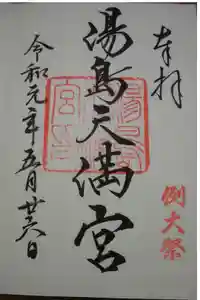 奉拝
湯島天満宮
例大祭
令和元年五月廿六日